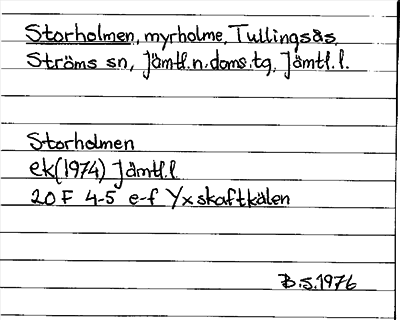 Storholmen, myrholme, Tullingsås,
Ströms sn, Jämtl.n.doms.tg, Jämtl.l.
Storholmen
ek(1974) Jämtl.l
20 F 4-5 e-f Yxskaftkälen
B.S.1976